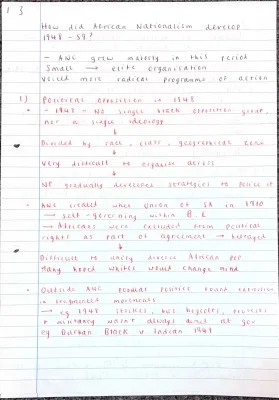 1 3
How did African Nationalism develop
1948-59?
- ANC grew majorly in this period
Small → elite organisation
Voiced more radical programme of action
1) Political opposition in 1948
- 1948 - No single black opposition group,
nor a single ideology
↓
Divided by race, class, geographical zone
↓
very difficult to organise across
↓
NP gradually developed strategies to police it
ANC created when Union of SA in 1910
→ self-governing within B.E
→ Africans were excluded from political
rights as part of agreement → betrayed
↓
Difficult to unify diverse African pop
Many hoped whites would change mind
Outside ANC popular politics found expression
in fragmented movements
→ eg 1948 strikes, bus boycotts, protests
→ militancy wasn't always against gov
eg Durban Black v Indian 1949